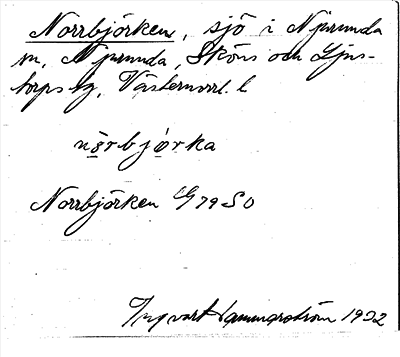 Norrbjörken, sjö i Njurunda
sn, Njurunda, Sköns och Ljus-
torps tg, Västernorrl. l
nörbjörka
Norrbjörken G 79 SO
Ingvart Hammarström 1932